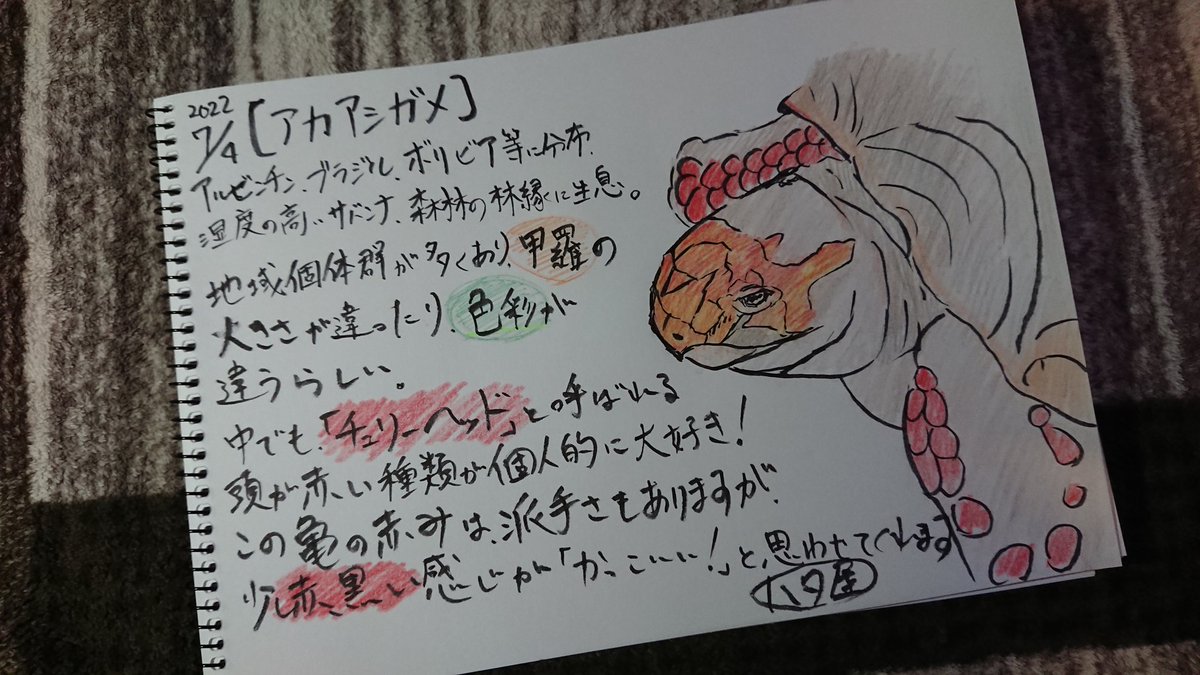 2022
7/4 [アカアシガメ]
アルゼンチン、ブラジル、ボリビア等に分布。
湿度の高いサバンナ、森林の林縁に生息。
地域個体群が多くあり、甲羅の
大きさが違ったり、色彩が
違うらしい。
中でも、「チェリーヘッド」と呼ばれる
頭が赤い種類が個人的に大好き!
この亀の赤みは、派手さもありますが、
少し赤黒い感じが「かっこいい!」と思わせてくれます
ハタ屋